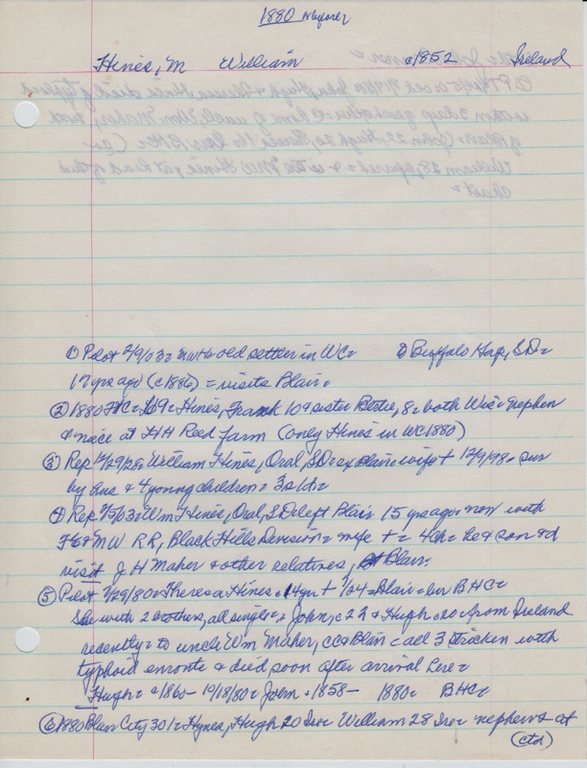 1880
Hines, M William c1852 Ireland
① Pilot 2/9/03= Mwth old settler in WC= ② Buffalo Gap, S.D.=
17 yrs ago (c1886) = visits Blair=
② 1880 = Hines, Frank 10 & sister Bertie, 8= both Wis= nephew
& niece at H H Reed farm (only Hines in WC 1880)
③ Rep William Hines, Oral, S.D= ex Blair= wife + 12/9/98= sur
by hus & 4 young children= 3s 1d=
④ Rep Wm Hines, Oral, S.D= left Blair 15 yrs ago= now with
F E & MW RR, Black Hills Division= wife += 4 ch= he & son & d
visit J H Maher & other relatives, Blair=
⑤ Pilot 7/29/80= Theresa Hines= 14 yr + Blair= bur BHC=
She with 2 brothers, all single= John, c 22 & Hugh c20= from Ireland
recently= to uncle Wm Maher, Blair= all 3 stricken with
typhoid enroute & died soon after arrival here=
Hugh= c1860- 10/18/80= John= c1858- 1880= BHC=
⑥ 1880 Blair City 301= Hynes, Hugh 20 Ire= William 28 Ire= nephews at
(ctd)